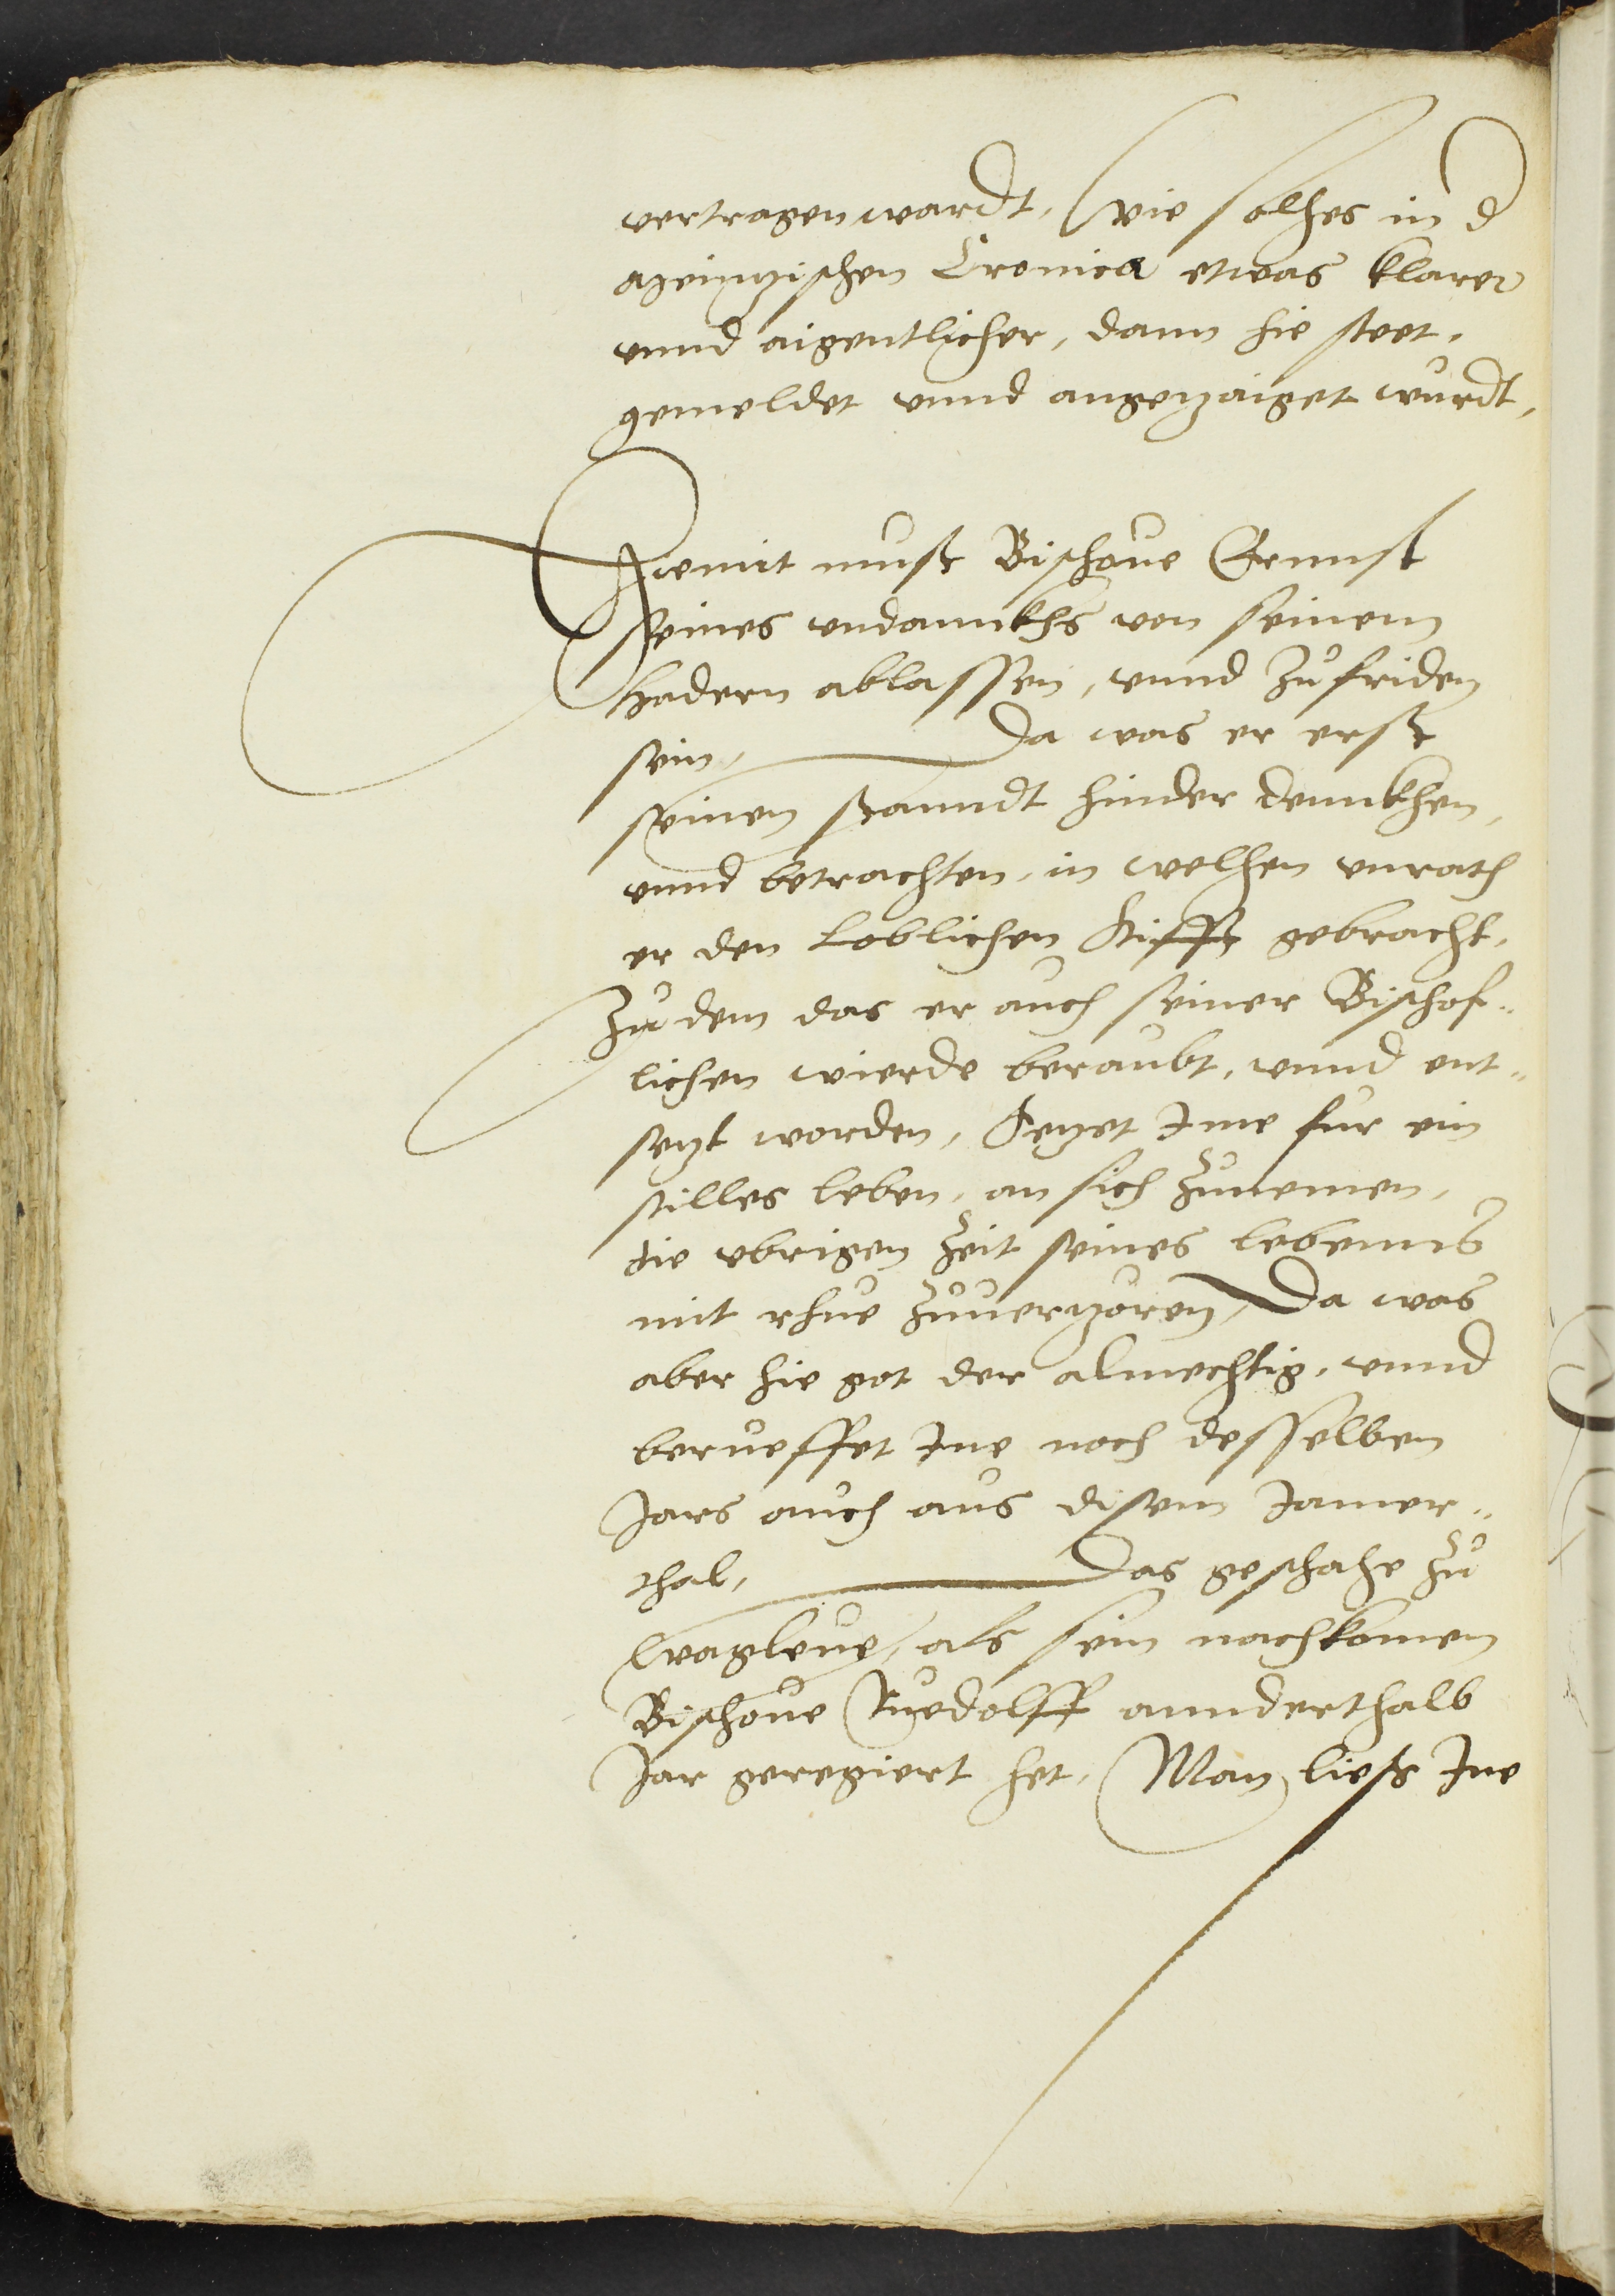 vertragen wardt, Wie solhes in d
Meinzischen Cronica etwas klarer
vnnd aigentlicher, dann hie steet,
gemeldet vnnd angezaiget wurdt,
Hiemit musst Bischoue Ernnst
seines vndannkhs von seinem
hadern ablassen, vnnd zufriden
sein, Da was er erst
seinen standt hinder dennkhen,
vnnd betrachten, in welhen vnrath
er den Loblichen Stifft gebracht,
Zu dem das er auch seiner Bischof-
lichen wierde beraubt, vnnd ent-
sezt worden, Sezet Ime fur ein
stilles leben, an sich zunemen,
die vbrigen Zeit seines lebenns
mit rhue zuuerzören, Da was
aber hie got der almechtig, vnnd
berueffet Ine noch desselben
Jars auch aus disem Jamer-
thal, Das geschahe zu
Wagleue, als sein nachkomen
Bischoue Ruedolff annderthalb
Jar geregiert het, Man liess Ine